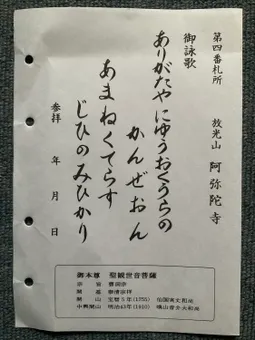 第四番札所 放光山 阿弥陀寺
御詠歌
ありがたやにゆうおくうらの
かんぜおん
あまねくてらす
じひのみひかり
参拝 年 月 日
御本尊 聖観世音菩薩
宗旨 曹洞宗
開山 宝暦5年(1755)
中興開山 明治43年(1910)